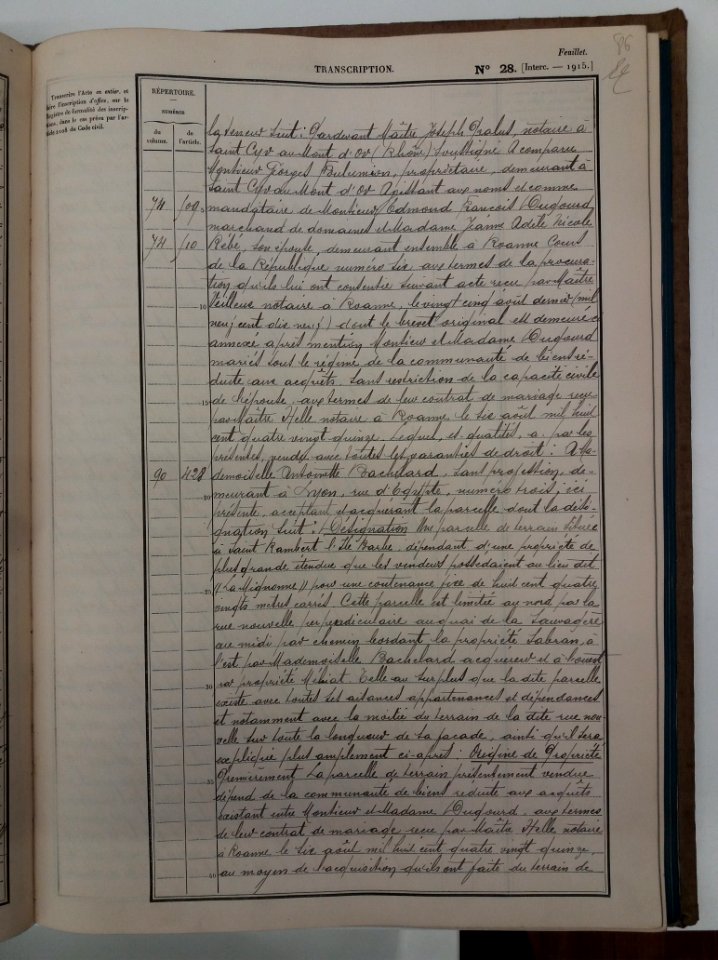 86
Feuillet.
TRANSCRIPTION.
N° 28. [Interc. — 1915.]
Transcrire l'Acte en entier, et
faire l'inscription d'office, sur le
Registre de formalité des inscrip-
tions, dans le cas prévu par l'ar-
ticle 2108 du Code civil.
RÉPERTOIRE.
NUMÉROS
du volume.
de l'article.
la teneur suit : Pardevant Maître Joseph Pralus, notaire à
Saint Cyr au Mont d'or (Rhône) soussigné A comparu
Monsieur Georges propriétaire, demeurant à
Saint Cyr au Mont d'or Agissant aux noms et comme
74 109 mandataire de Monsieur Edmond François Dugourd
marchand de domaines et Madame Jeanne Adèle Nicole
74 110 Rébé, son épouse, demeurant ensemble à Roanne Cours
de la République numéro six, aux termes de la procura-
tion qu'ils lui ont consentie suivant acte reçu par Maître
10 Veilleux notaire à Roanne, le vingt cinq août dernier (mil
neuf cent dix neuf) dont le brevet original est demeuré ci
annexé après mention Monsieur et Madame Dugourd
mariés sous le régime de la communauté de biens ré-
duite aux acquêts, sans restriction de la capacité civile
15 de l'épouse, aux termes de leur contrat de mariage reçu
par Maître Helle notaire à Roanne, le six août mil huit
cent quatre vingt quinze. Lequel, es qualités, a, par les
présentes, vendu avec toutes les garanties de droit : A Ma-
90 428 demoiselle Antoinette Bachelard, sans profession, de-
20 meurant à Lyon, rue d'Egypte, numéro trois, ici
présente, acceptant et acquérant la parcelle dont la dési-
gnation suit : Désignation Une parcelle de terrain située
à Saint Rambert l'Ile Barbe, dépendant d'une propriété de
plus grande étendue que les vendeurs possédaient au lieu dit
25 "La Mignonne" pour une contenance fixe de huit cent quatre
vingts mètres carrés. Cette parcelle est limitée au nord par la
rue nouvelle perpendiculaire au quai de la Sauvagère
au midi par chemin bordant la propriété Sabran, à
l'est par Mademoiselle Bachelard acquéreur et à l'ouest
30 par propriété Telle au surplus que la dite parcelle
existe avec toutes ses aisances appartenances et dépendances
et notamment avec la moitié du terrain de la dite rue nou-
velle sur toute la longueur de sa façade, ainsi qu'il sera
expliqué plus amplement ci-après : Origine de Propriété
35 Premièrement La parcelle de terrain présentement vendue
dépend de la communauté de biens réduite aux acquêts
existant entre Monsieur et Madame Dugourd, aux termes
de leur contrat de mariage reçu par Maître Helle notaire
à Roanne le six août mil huit cent quatre vingt quinze,
40 au moyen de l'acquisition qu'ils ont faite du terrain de